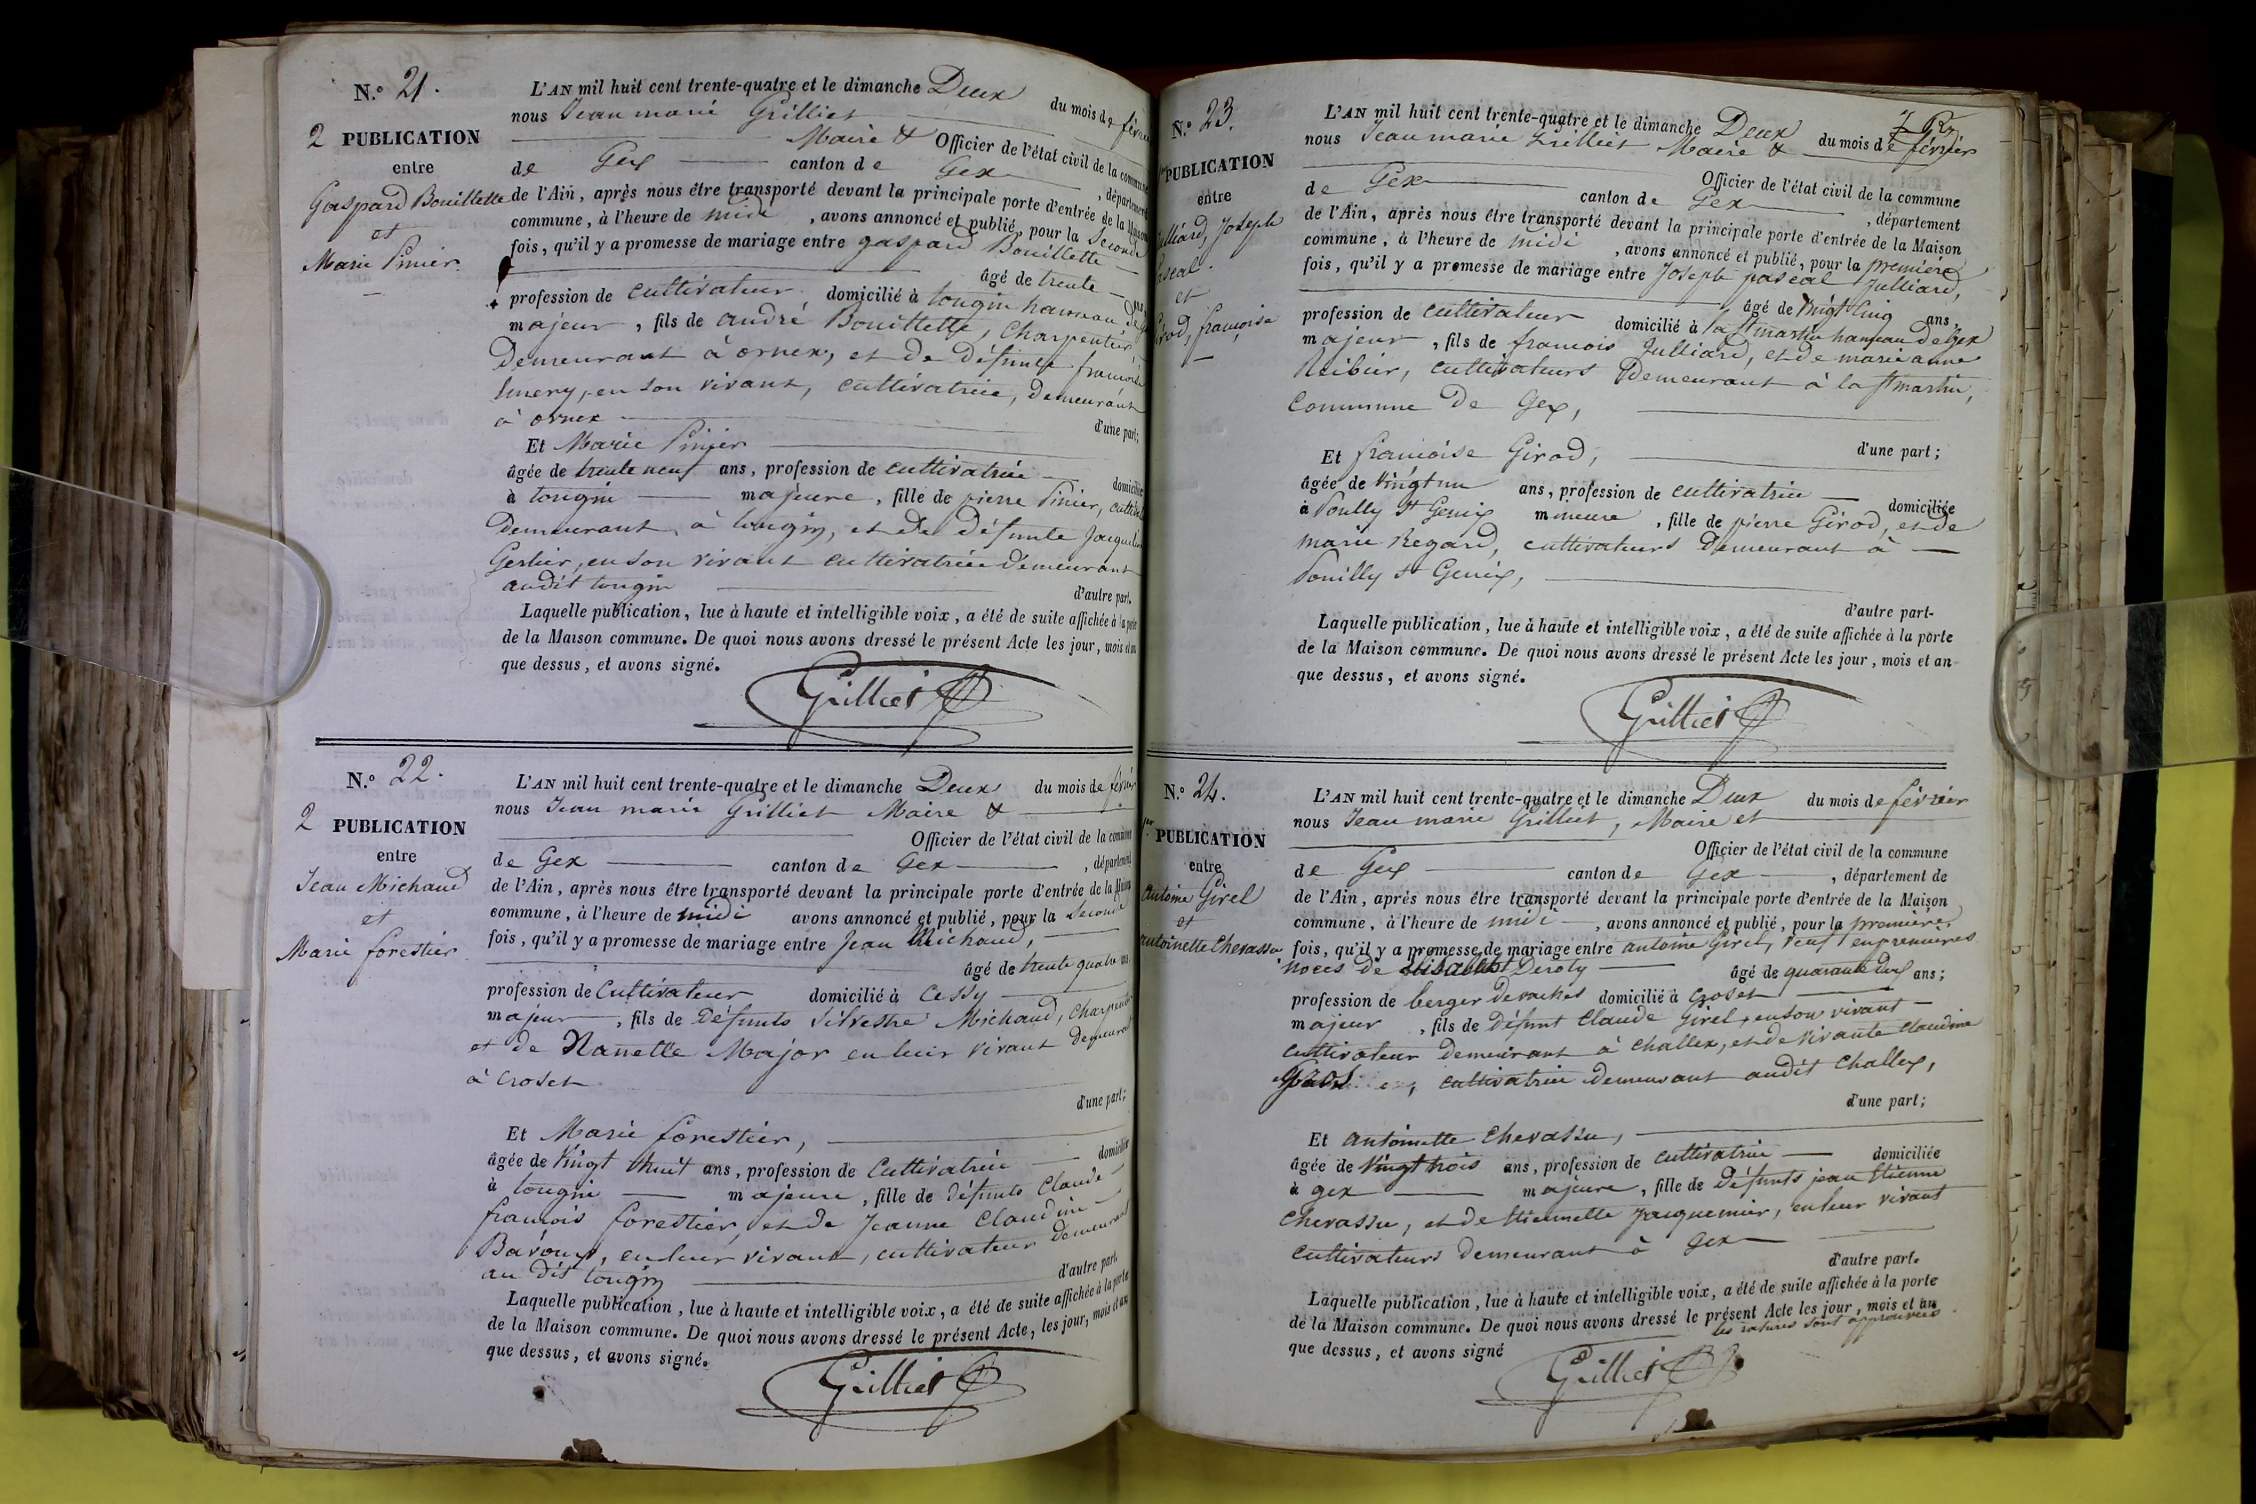 N.° 21.
2 PUBLICATION
entre
Gaspard Bouillette
et
Marie Pinier.
L'AN mil huit cent trente-quatre et le dimanche Deux du mois de février
nous Jean marie Grilliet
Maire & Officier de l'état civil de la commune
de Gex canton de Gex, département
de l'Ain, après nous être transporté devant la principale porte d'entrée de la Maison
commune, à l'heure de midi, avons annoncé et publié, pour la Seconde
fois, qu'il y a promesse de mariage entre gaspard Bouillette
âgé de trente ans
profession de cultivateur domicilié à tougin hameau de Gex
majeur, fils de andré Bouillette, Charpentier,
Demeurant à ornex, et de défunte francoise
Emery, en son vivant, cultivatrice, demeurant
à ornex d'une part;
Et Marie Pinier
âgée de trente neuf ans, profession de cultivatrice domiciliée
à tougin majeure, fille de pierre Pinier,
Demeurant à tougin, et de Défunte Jacqueline
Gerlier, en son vivant cultivatrice demeurant
audit tougin d'autre part.
Laquelle publication, lue à haute et intelligible voix, a été de suite affichée à la porte
de la Maison commune. De quoi nous avons dressé le présent Acte les jour, mois et an
que dessus, et avons signé.
Grilliet
N.° 22.
2 PUBLICATION
entre
Jean Michaud
et
Marie forestier
L'AN mil huit cent trente-quatre et le dimanche Deux du mois de février
nous Jean marie Grilliet Maire &
Officier de l'état civil de la commune
de Gex canton de Gex, département
de l'Ain, après nous être transporté devant la principale porte d'entrée de la Maison
commune, à l'heure de midi avons annoncé et publié, pour la Seconde
fois, qu'il y a promesse de mariage entre Jean Michaud,
âgé de trente quatre ans
profession de Cultivateur domicilié à Cessy
majeur, fils de Défunts Silvestre Michaud, Charpentier
et de Nanette Major en leur vivant demeurant
à Croset
d'une part;
Et Marie forestier,
âgée de Vingt huit ans, profession de Cultivatrice domiciliée
à tougin majeure, fille de défunts Claude
francois forestier, et de Jeanne Claudine
en leur vivant, cultivateur demeurant
au dit tougin d'autre part.
Laquelle publication, lue à haute et intelligible voix, a été de suite affichée à la porte
de la Maison commune. De quoi nous avons dressé le présent Acte, les jour, mois et an
que dessus, et avons signé.
Grilliet
N.° 23.
PUBLICATION
entre
Julliard, Joseph
pascal.
et
Girod, francoise
L'AN mil huit cent trente-quatre et le dimanche Deux du mois de février
nous Jean marie Grilliet Maire &
Officier de l'état civil de la commune
de Gex canton de Gex, département
de l'Ain, après nous être transporté devant la principale porte d'entrée de la Maison
commune, à l'heure de midi, avons annoncé et publié, pour la première
fois, qu'il y a promesse de mariage entre Joseph pascal Julliard,
âgé de Vingt cinq ans,
profession de cultivateur domicilié à la St martin hameau de Gex
majeur, fils de francois Julliard, et de marie anne
cultivateurs Demeurant à la St martin,
Commune de Gex,
d'une part;
Et francoise Girod,
âgée de Vingt un ans, profession de cultivatrice domiciliée
à Pouilly St Genix mineure, fille de pierre Girod, et de
marie Regard, cultivateurs demeurant à
Pouilly St Genix,
d'autre part.
Laquelle publication, lue à haute et intelligible voix, a été de suite affichée à la porte
de la Maison commune. De quoi nous avons dressé le présent Acte les jour, mois et an
que dessus, et avons signé.
Grilliet
N.° 24.
1er PUBLICATION
entre
antoine Girel
et
antoinette Chevassu
L'AN mil huit cent trente-quatre et le dimanche Deux du mois de février
nous Jean marie Grilliet, Maire et
Officier de l'état civil de la commune
de Gex canton de Gex, département de
de l'Ain, après nous être transporté devant la principale porte d'entrée de la Maison
commune, à l'heure de midi, avons annoncé et publié, pour la première
fois, qu'il y a promesse de mariage entre antoine Girel, veuf en premières
noces de Elisabeth Deroty âgé de quarante deux ans;
profession de berger de vaches domicilié à Croset
majeur, fils de Défunt Claude Girel, en son vivant
cultivateur demeurant à Challex, et de vivante Claudine
Gros, cultivatrice demeurant audit Challex,
d'une part;
Et antoinette Chevassu,
âgée de Vingt trois ans, profession de cultivatrice domiciliée
à gex majeure, fille de Défunts jean Etienne
Chevassu, et de Etiennette Jacquemier, en leur vivant
cultivateurs demeurant à Gex
d'autre part.
Laquelle publication, lue à haute et intelligible voix, a été de suite affichée à la porte
de la Maison commune. De quoi nous avons dressé le présent Acte les jour, mois et an
les ratures sont approuvées
que dessus, et avons signé
Grilliet